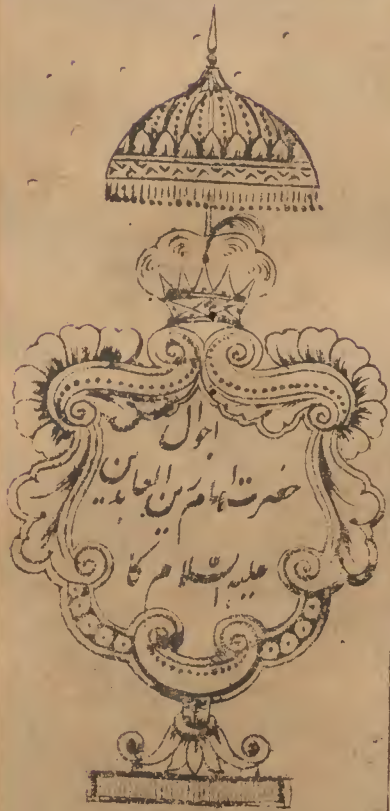 احوال
حضرت امام زین العابدین
علیہ السلام کا